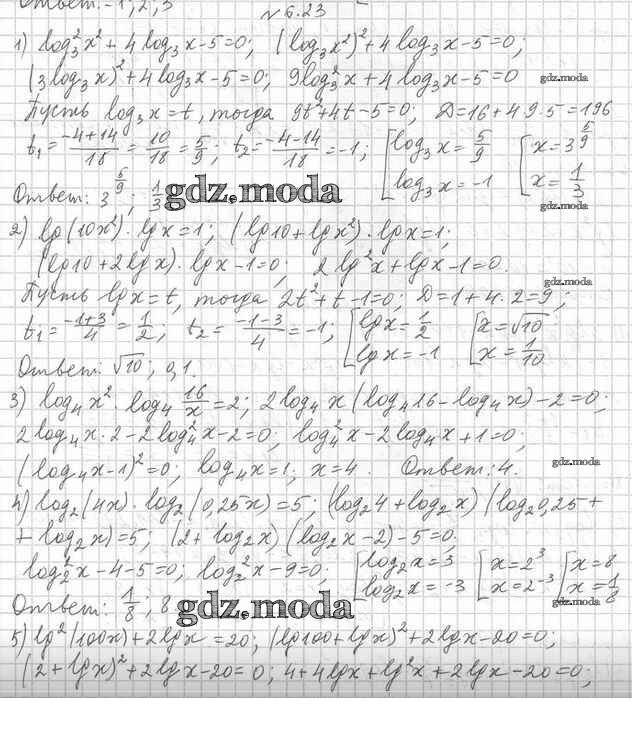 Ответ: -1; 2; 3
№ 6.23
1) log₃²x² + 4 log₃x - 5 = 0; (log₃x²)² + 4 log₃x - 5 = 0;
(3 log₃x)² + 4 log₃x - 5 = 0; 9 log₃²x + 4 log₃x - 5 = 0
gdz.moda
Пусть log₃x = t, тогда 9t² + 4t - 5 = 0; D = 16 + 4·9·5 = 196
t₁ = (-4+14)/18 = 10/18 = 5/9; t₂ = (-4-14)/18 = -1; [log₃x = 5/9 [x = 3^(5/9)
log₃x = -1 x = 1/3
Ответ: 3^(5/9); 1/3
gdz.moda
gdz.moda
2) lg(10x²)·lgx = 1; (lg10 + lgx²)·lgx = 1;
(lg10 + 2lgx)·lgx - 1 = 0; 2lg²x + lgx - 1 = 0.
gdz.moda
Пусть lgx = t, тогда 2t² + t - 1 = 0; D = 1 + 4·2 = 9;
t₁ = (-1+3)/4 = 1/2; t₂ = (-1-3)/4 = -1; [lgx = 1/2 [x = √10
lgx = -1 x = 1/10
Ответ: √10; 0,1.
3) log₄x² · log₄ 16/x = 2; 2 log₄x (log₄16 - log₄x) - 2 = 0;
2 log₄x · 2 - 2 log₄²x - 2 = 0; log₄²x - 2 log₄x + 1 = 0;
(log₄x - 1)² = 0; log₄x = 1; x = 4. Ответ: 4.
gdz.moda
4) log₂(4x) · log₂(0,25x) = 5; (log₂4 + log₂x)(log₂0,25 +
+ log₂x) = 5; (2 + log₂x)(log₂x - 2) - 5 = 0.
log₂²x - 4 - 5 = 0; log₂²x - 9 = 0; [log₂x = 3 [x = 2³ [x = 8
log₂x = -3 x = 2⁻³ x = 1/8
Ответ: 1/8; 8
gdz.moda
gdz.moda
5) lg²(100x) + 2lgx = 20; (lg100 + lgx)² + 2lgx - 20 = 0;
(2 + lgx)² + 2lgx - 20 = 0; 4 + 4lgx + lg²x + 2lgx - 20 = 0;